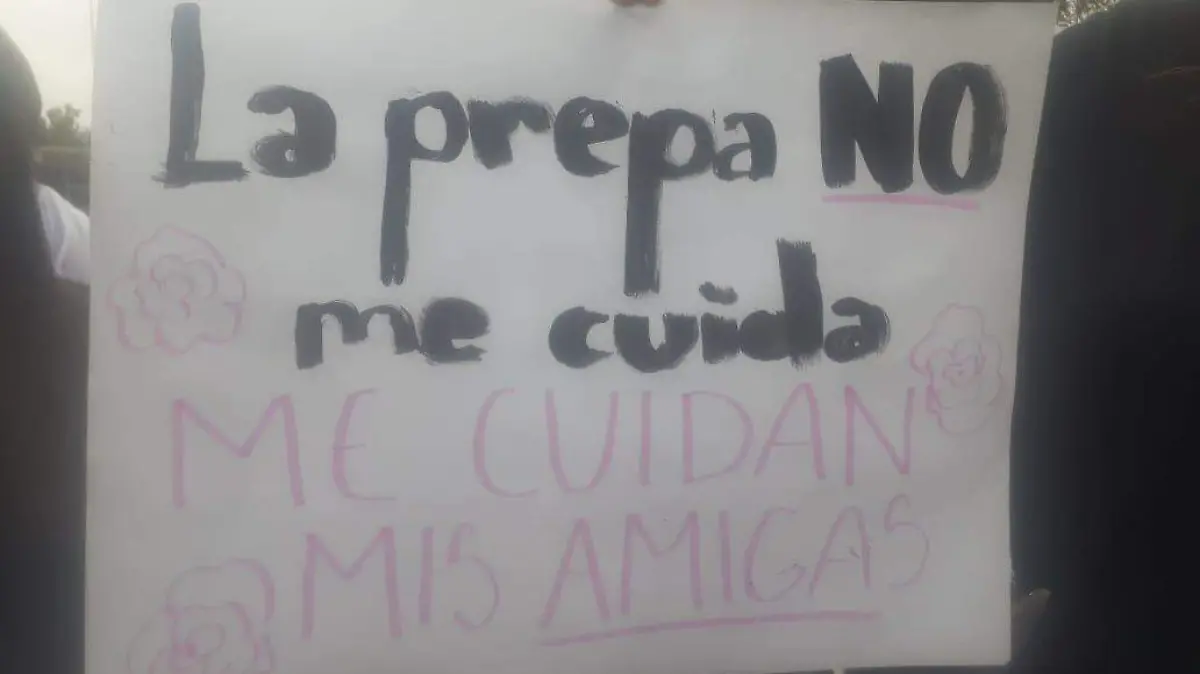 La prepa NO
me cuida
ME CUIDAN
MIS AMIGAS